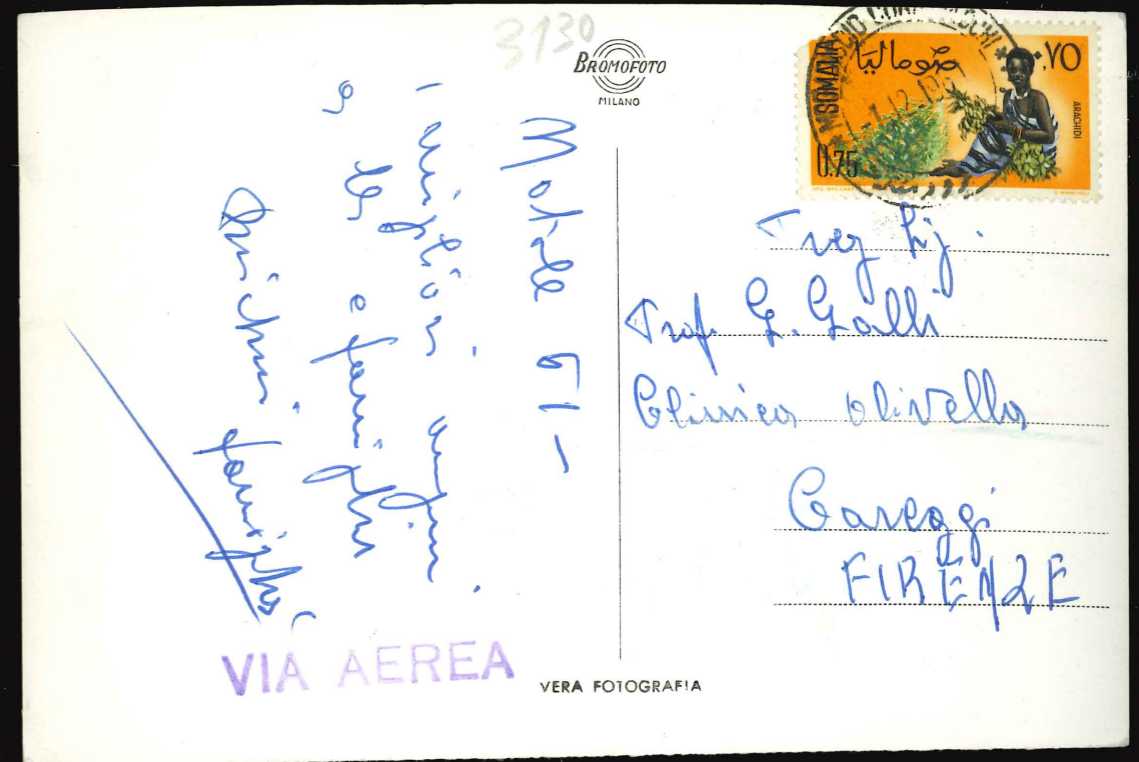 3130
BROMOFOTO
MILANO
SOMALIA
صوماليا
.٧٥
ARACHIDI
0.75
Natale 61 -
i migliori auguri
a te e famiglia
famiglia
Preg Sig.
Prof. G. Galli
Clinica Olivella
Careggi
FIRENZE
VIA AEREA
VERA FOTOGRAFIA